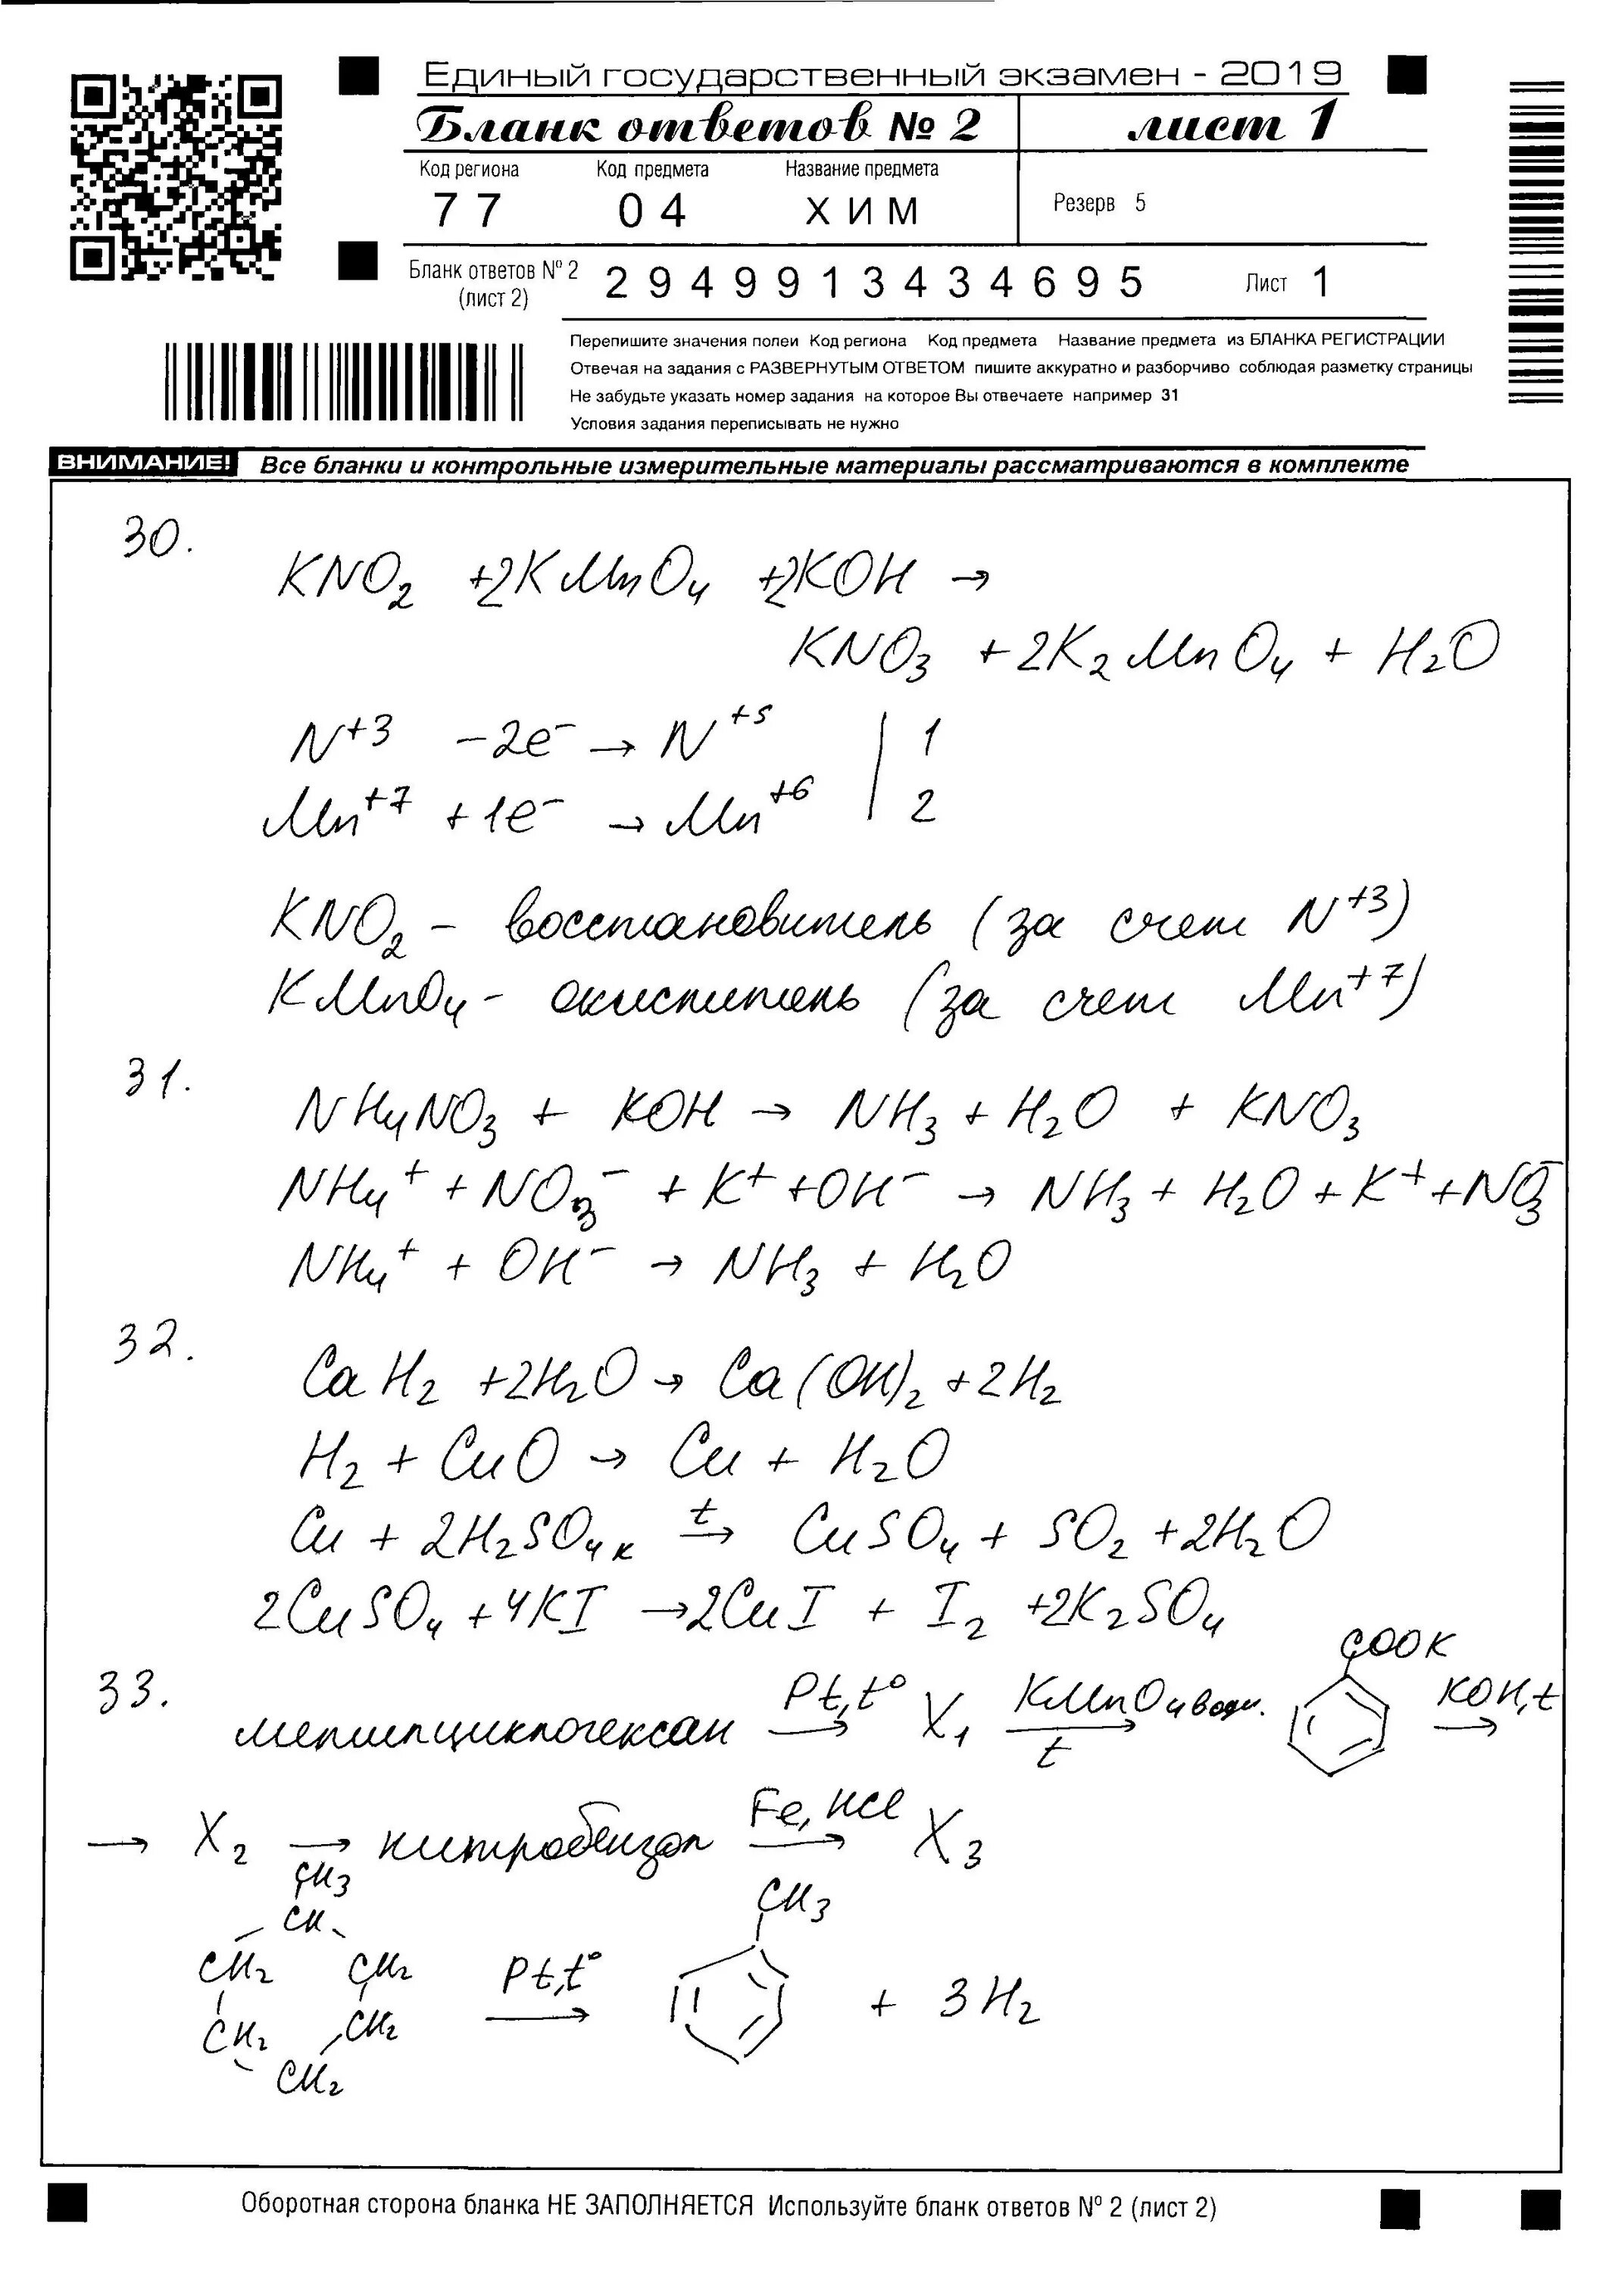 Единый государственный экзамен - 2019
Бланк ответов № 2 лист 1
Код региона Код предмета Название предмета
77 04 ХИМ Резерв 5
Бланк ответов № 2 (лист 2) 2949913434695 Лист 1
Перепишите значения полеи Код региона Код предмета Название предмета из БЛАНКА РЕГИСТРАЦИИ
Отвечая на задания с РАЗВЕРНУТЫМ ОТВЕТОМ пишите аккуратно и разборчиво соблюдая разметку страницы
Не забудьте указать номер задания на которое Вы отвечаете например 31
Условия задания переписывать не нужно
ВНИМАНИЕ! Все бланки и контрольные измерительные материалы рассматриваются в комплекте
30.
KNO₂ +2KMnO₄ +2KOH →
KNO₃ + 2K₂MnO₄ + H₂O
N⁺³ −2e⁻ → N⁺⁵ | 1
Mn⁺⁷ + 1e⁻ → Mn⁺⁶ | 2
KNO₂ – восстановитель (за счет N⁺³)
KMnO₄ – окислитель (за счет Mn⁺⁷)
31.
NH₄NO₃ + KOH → NH₃ + H₂O + KNO₃
NH₄⁺ + NO₃⁻ + K⁺ + OH⁻ → NH₃ + H₂O + K⁺ + NO₃⁻
NH₄⁺ + OH⁻ → NH₃ + H₂O
32.
CaH₂ +2H₂O → Ca(OH)₂ +2H₂
H₂ + CuO → Cu + H₂O
Cu + 2H₂SO₄ к t→ CuSO₄ + SO₂ +2H₂O
2CuSO₄ +4KI → 2CuI + I₂ +2K₂SO₄
33.
COOK
метилциклогексан Pt,t°→ X₁ KMnO₄ водн. t→ KOH,t→
→ X₂ → нитробензол Fe, HCl→ X₃
CH₃ CH₃
CH
CH₂ CH₂ Pt,t°→ + 3H₂
CH₂ CH₂
CH₂
Оборотная сторона бланка НЕ ЗАПОЛНЯЕТСЯ Используйте бланк ответов № 2 (лист 2)